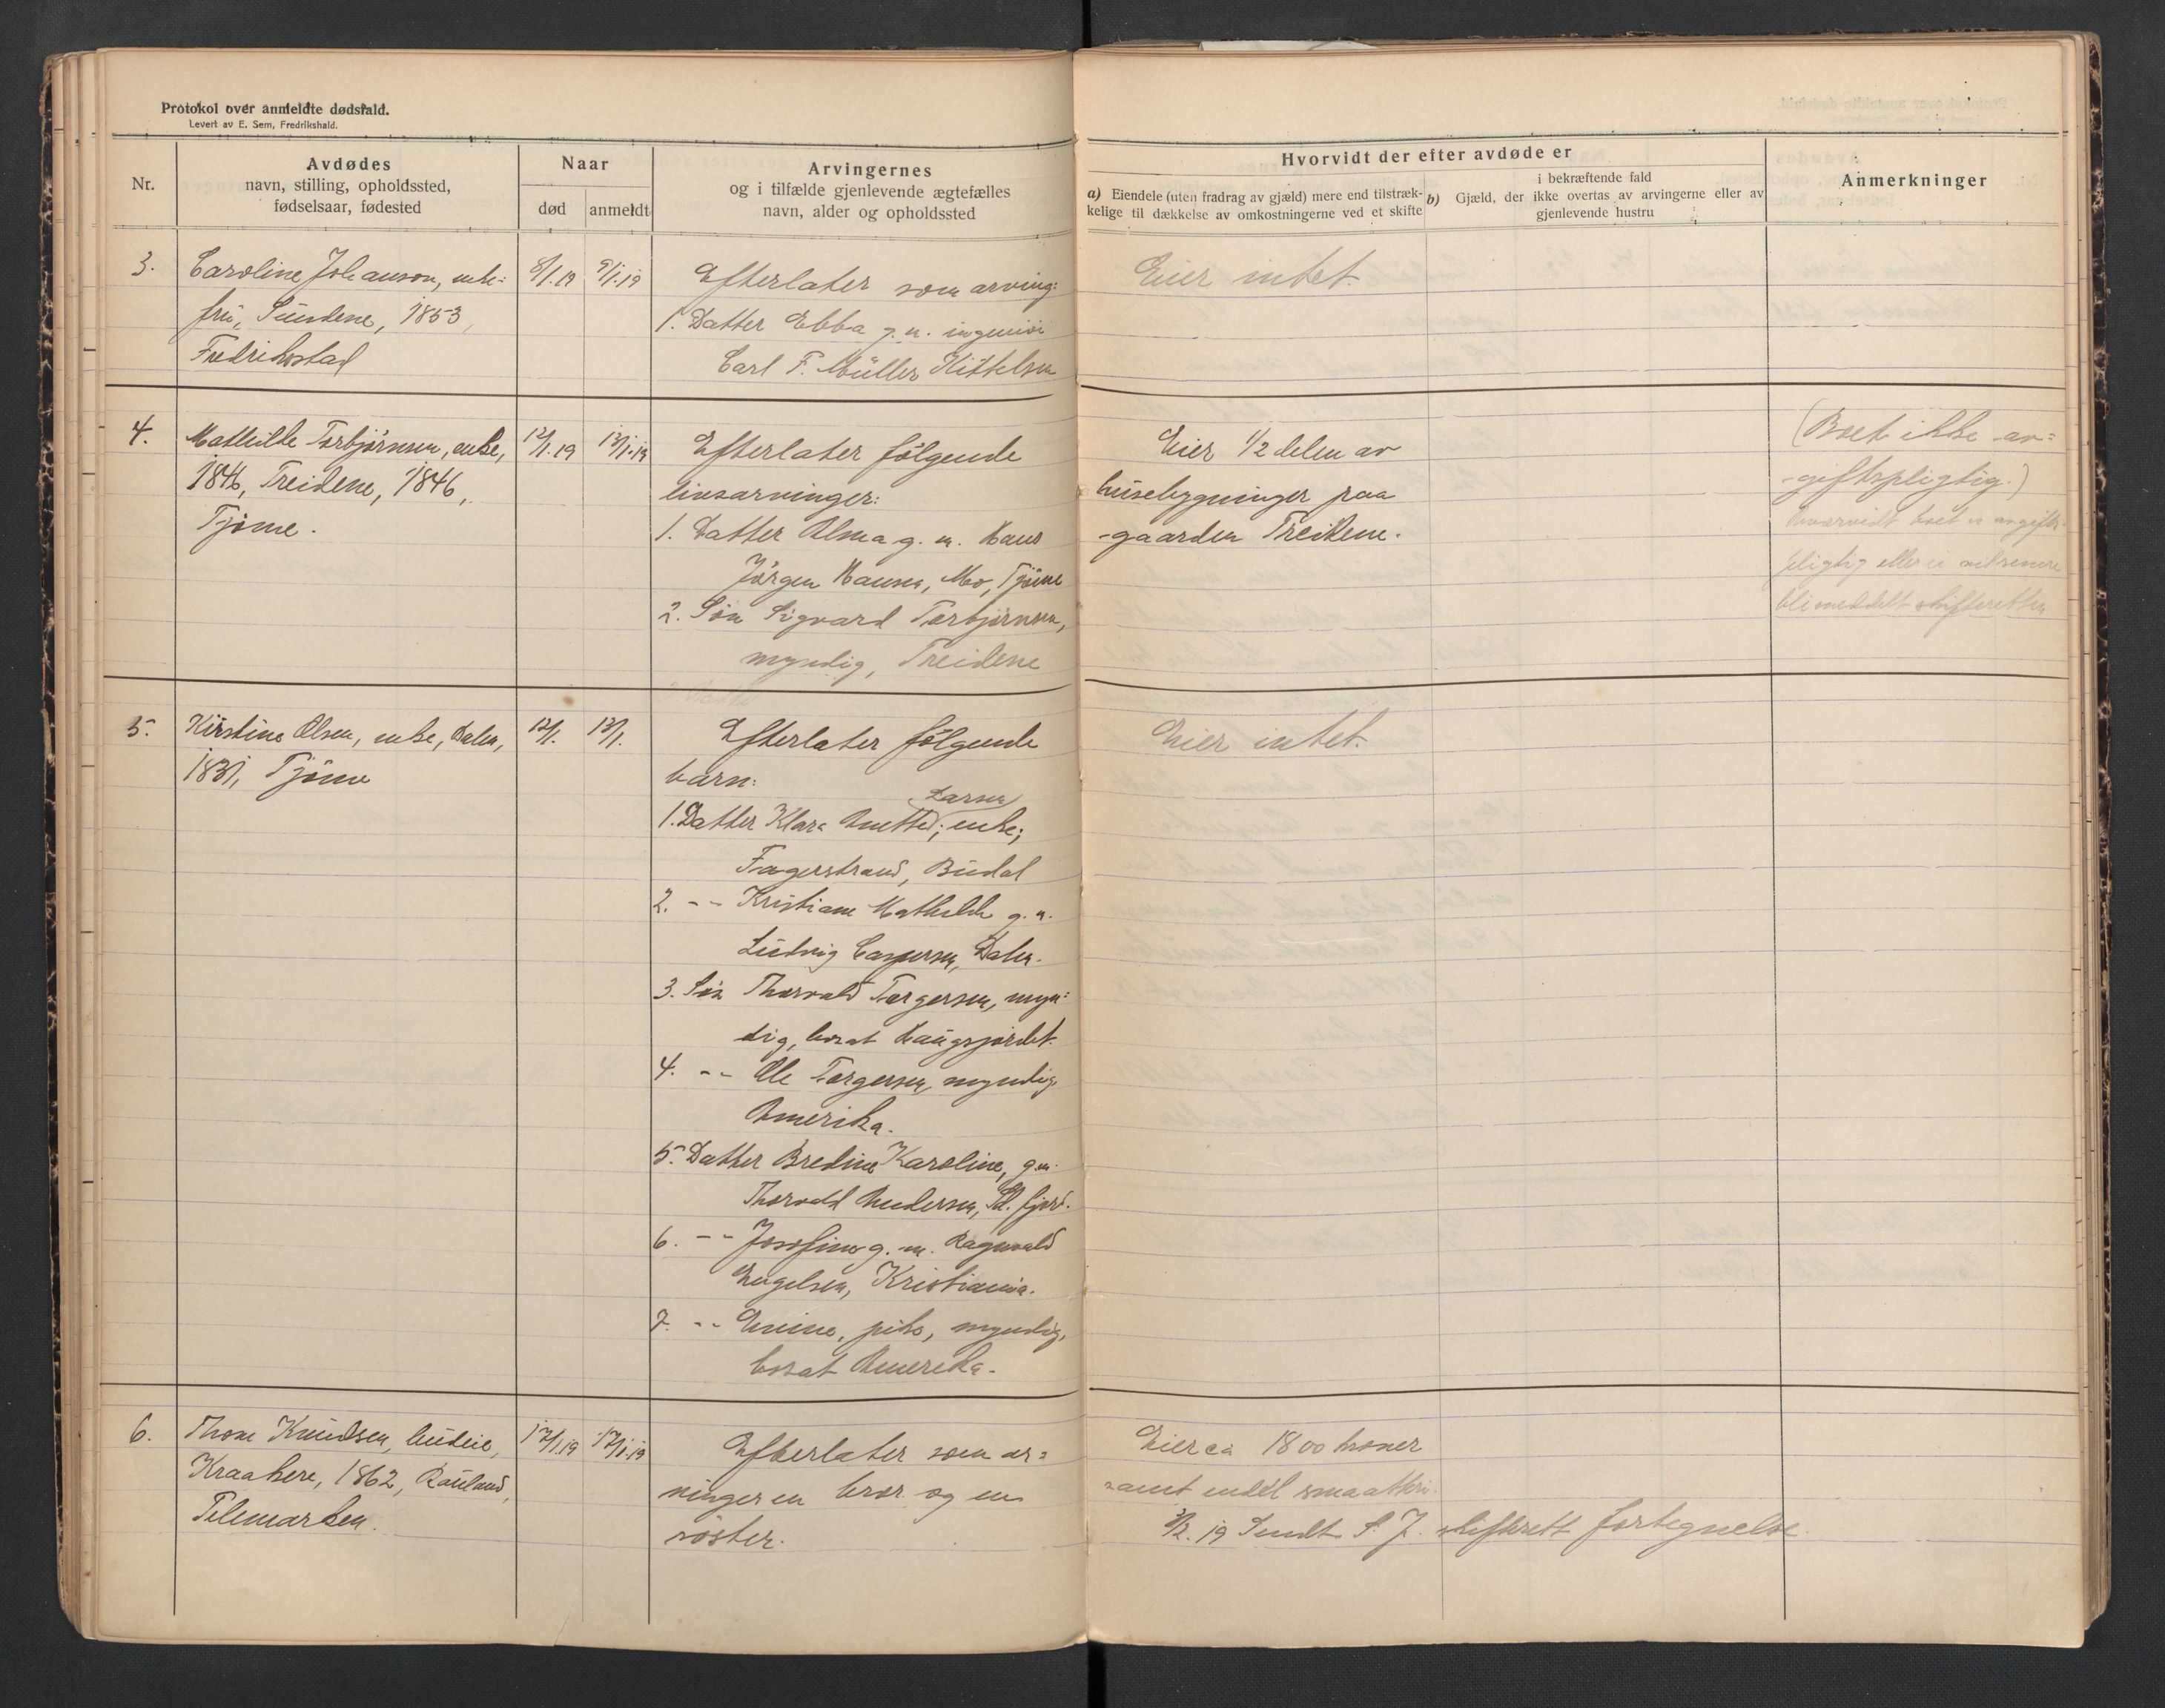 Protokol over anmeldte dødsfald.
Levert av E. Sem, Fredrikshald.
Nr.
Avdødes
navn, stilling, opholdssted,
fødselsaar, fødested
Naar
død
anmeldt
Arvingernes
og i tilfælde gjenlevende ægtefælles
navn, alder og opholdssted
Hvorvidt der efter avdøde er
a) Eiendele (uten fradrag av gjæld) mere end tilstræk-
kelige til dækkelse av omkostningerne ved et skifte
i bekræftende fald
b) Gjæld, der ikke overtas av arvingerne eller av
gjenlevende hustru
Anmerkninger
3.
Caroline Johanson, enke-
fru, Sundene, 1853,
Fredrikstad
8/1.19
9/1.19
Efterlater som arving:
1. Datter Ebba g.m. ingeniør
Carl F. Müller Kittelsen
Eier intet.
4.
Mathilde Torbjørnsen, enke,
1846, Treidene, 1846,
Tjøme.
12/1.19
13/1.19
Efterlater følgende
livsarvinger:
1. Datter Alma g.m. Hans
Jørgen Hansen, Mo, Tjøme
2. Søn Sigvard Torbjørnsen,
myndig, Treidene
Eier 1/2 delen av
husebygninger paa
gaarden Treidene.
(Boet ikke av-
giftspligtig.)
Hvorvidt boet er avgifts-
pligtig eller ei vil senere
bli meddelt skifteretten
5.
Kirstine Olsen, enke, Dalen,
1831, Tjøme
12/1.
13/1.
Efterlater følgende
barn:
Larsen
1. Datter Klara Anette; enke;
Fagerstrand, Budal
2. -- Kristiane Mathilde g.m.
Ludvig Caspersen, Dalen.
3. Søn Thorvald Torgersen, myn-
dig, bosat Haugsjordet.
4. -- Ole Torgersen, myndig,
Amerika.
5. Datter Bredine Karoline, g.m.
Thorvald Andersen, Sd. fjord.
6. -- Josefine g.m. Ragnvald
Engelsen, Kristiania.
7. -- Enine, pike, myndig,
bosat Amerika.
Eier intet.
6.
Thone Knudsen,
Kraakere, 1862, Rauland,
Telemarken.
12/1.19
17/1.19
Efterlater som ar-
vinger en bror og en
søster.
Eier ca 1800 kroner
samt endel smaatteri.
3/2.19 Sendt S. J. skifterett fortegnelse.